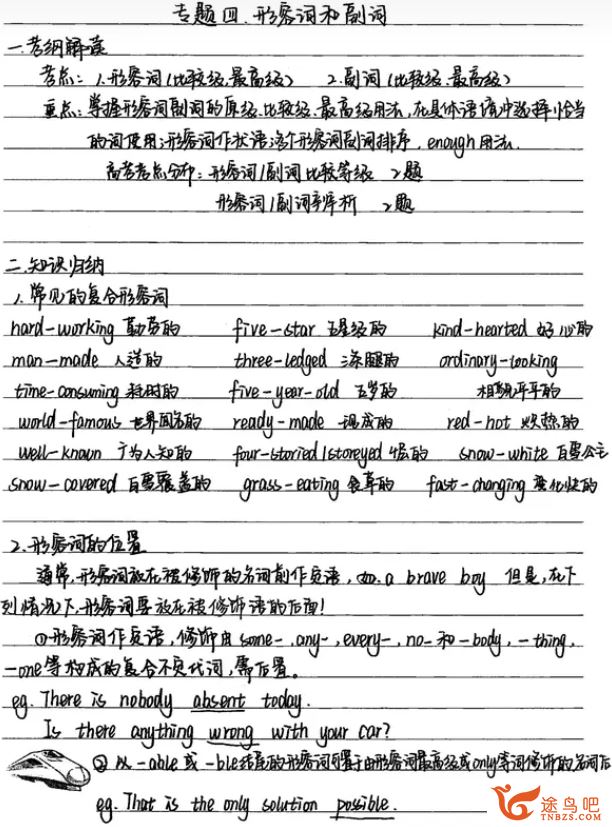 专题四.形容词和副词
一.考纲解读
考点: 1.形容词(比较级.最高级) 2.副词(比较级.最高级)
重点:掌握形容词副词的原级.比较级.最高级用法,在具体语境中选择恰当
的词使用;形容词作状语;多个形容词副词排序, enough用法.
高考考点分布:形容词/副词比较等级 2题
形容词/副词辨析 2题
二.知识归纳
1.常见的复合形容词
hard-working 勤劳的 five-star 五星级的 kind-hearted 好心的
man-made 人造的 three-ledged 三条腿的 ordinary-looking
time-consuming 耗时的 five-year-old 五岁的 相貌平平的
world-famous 世界闻名的 ready-made 现成的 red-hot 炽热的
well-known 广为人知的 four-storied/storeyed 4层的 snow-white 白雪公主
snow-covered 白雪覆盖的 grass-eating 食草的 fast-changing 变化快的
2.形容词的位置
通常,形容词放在被修饰的名词前作定语,如.a brave boy 但是,在下
列情况下,形容词要放在被修饰语的后面!
①形容词作定语,修饰由some-,any-,every-,no-和-body,-thing,
-one等构成的复合不定代词,需后置。
eg. There is nobody absent today.
Is there anything wrong with your car?
②以-able或-ble结尾的形容词可置于由形容词最高级或only等词修饰的名词后
eg. That is the only solution possible.
途鸟吧
TNBZS.COM